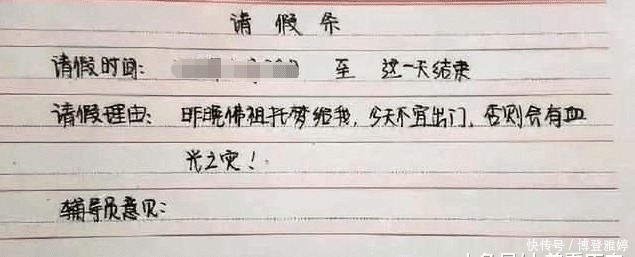 请假条
请假时间: 至 这一天结束
请假理由: 昨晚佛祖托梦给我,今天不宜出门,否则会有血
光之灾!
辅导员意见:
快传号/博登雅婷